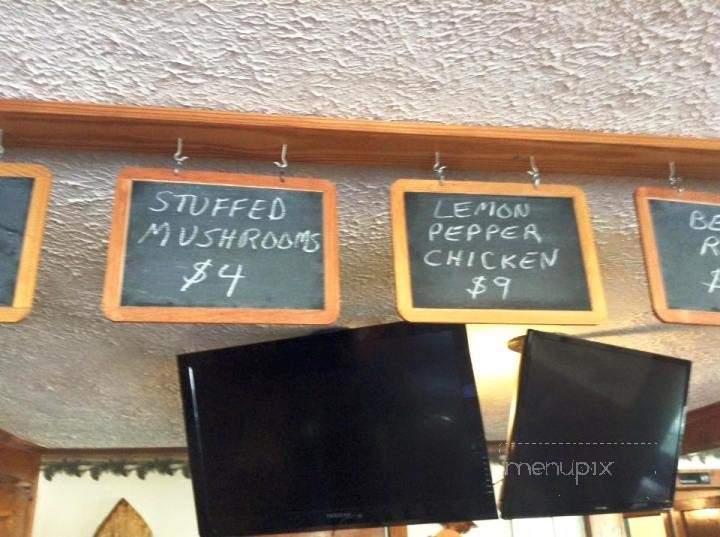 STUFFED
MUSHROOMS
$4
LEMON
PEPPER
CHICKEN
$9
BE
R
$
menupix